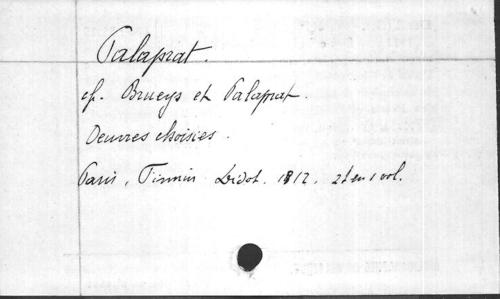 Palaprat.
cf. Brueys et Palaprat.
Oeuvres choisies.
Paris, Firmin Didot. 1812. 2 t en 1 vol.